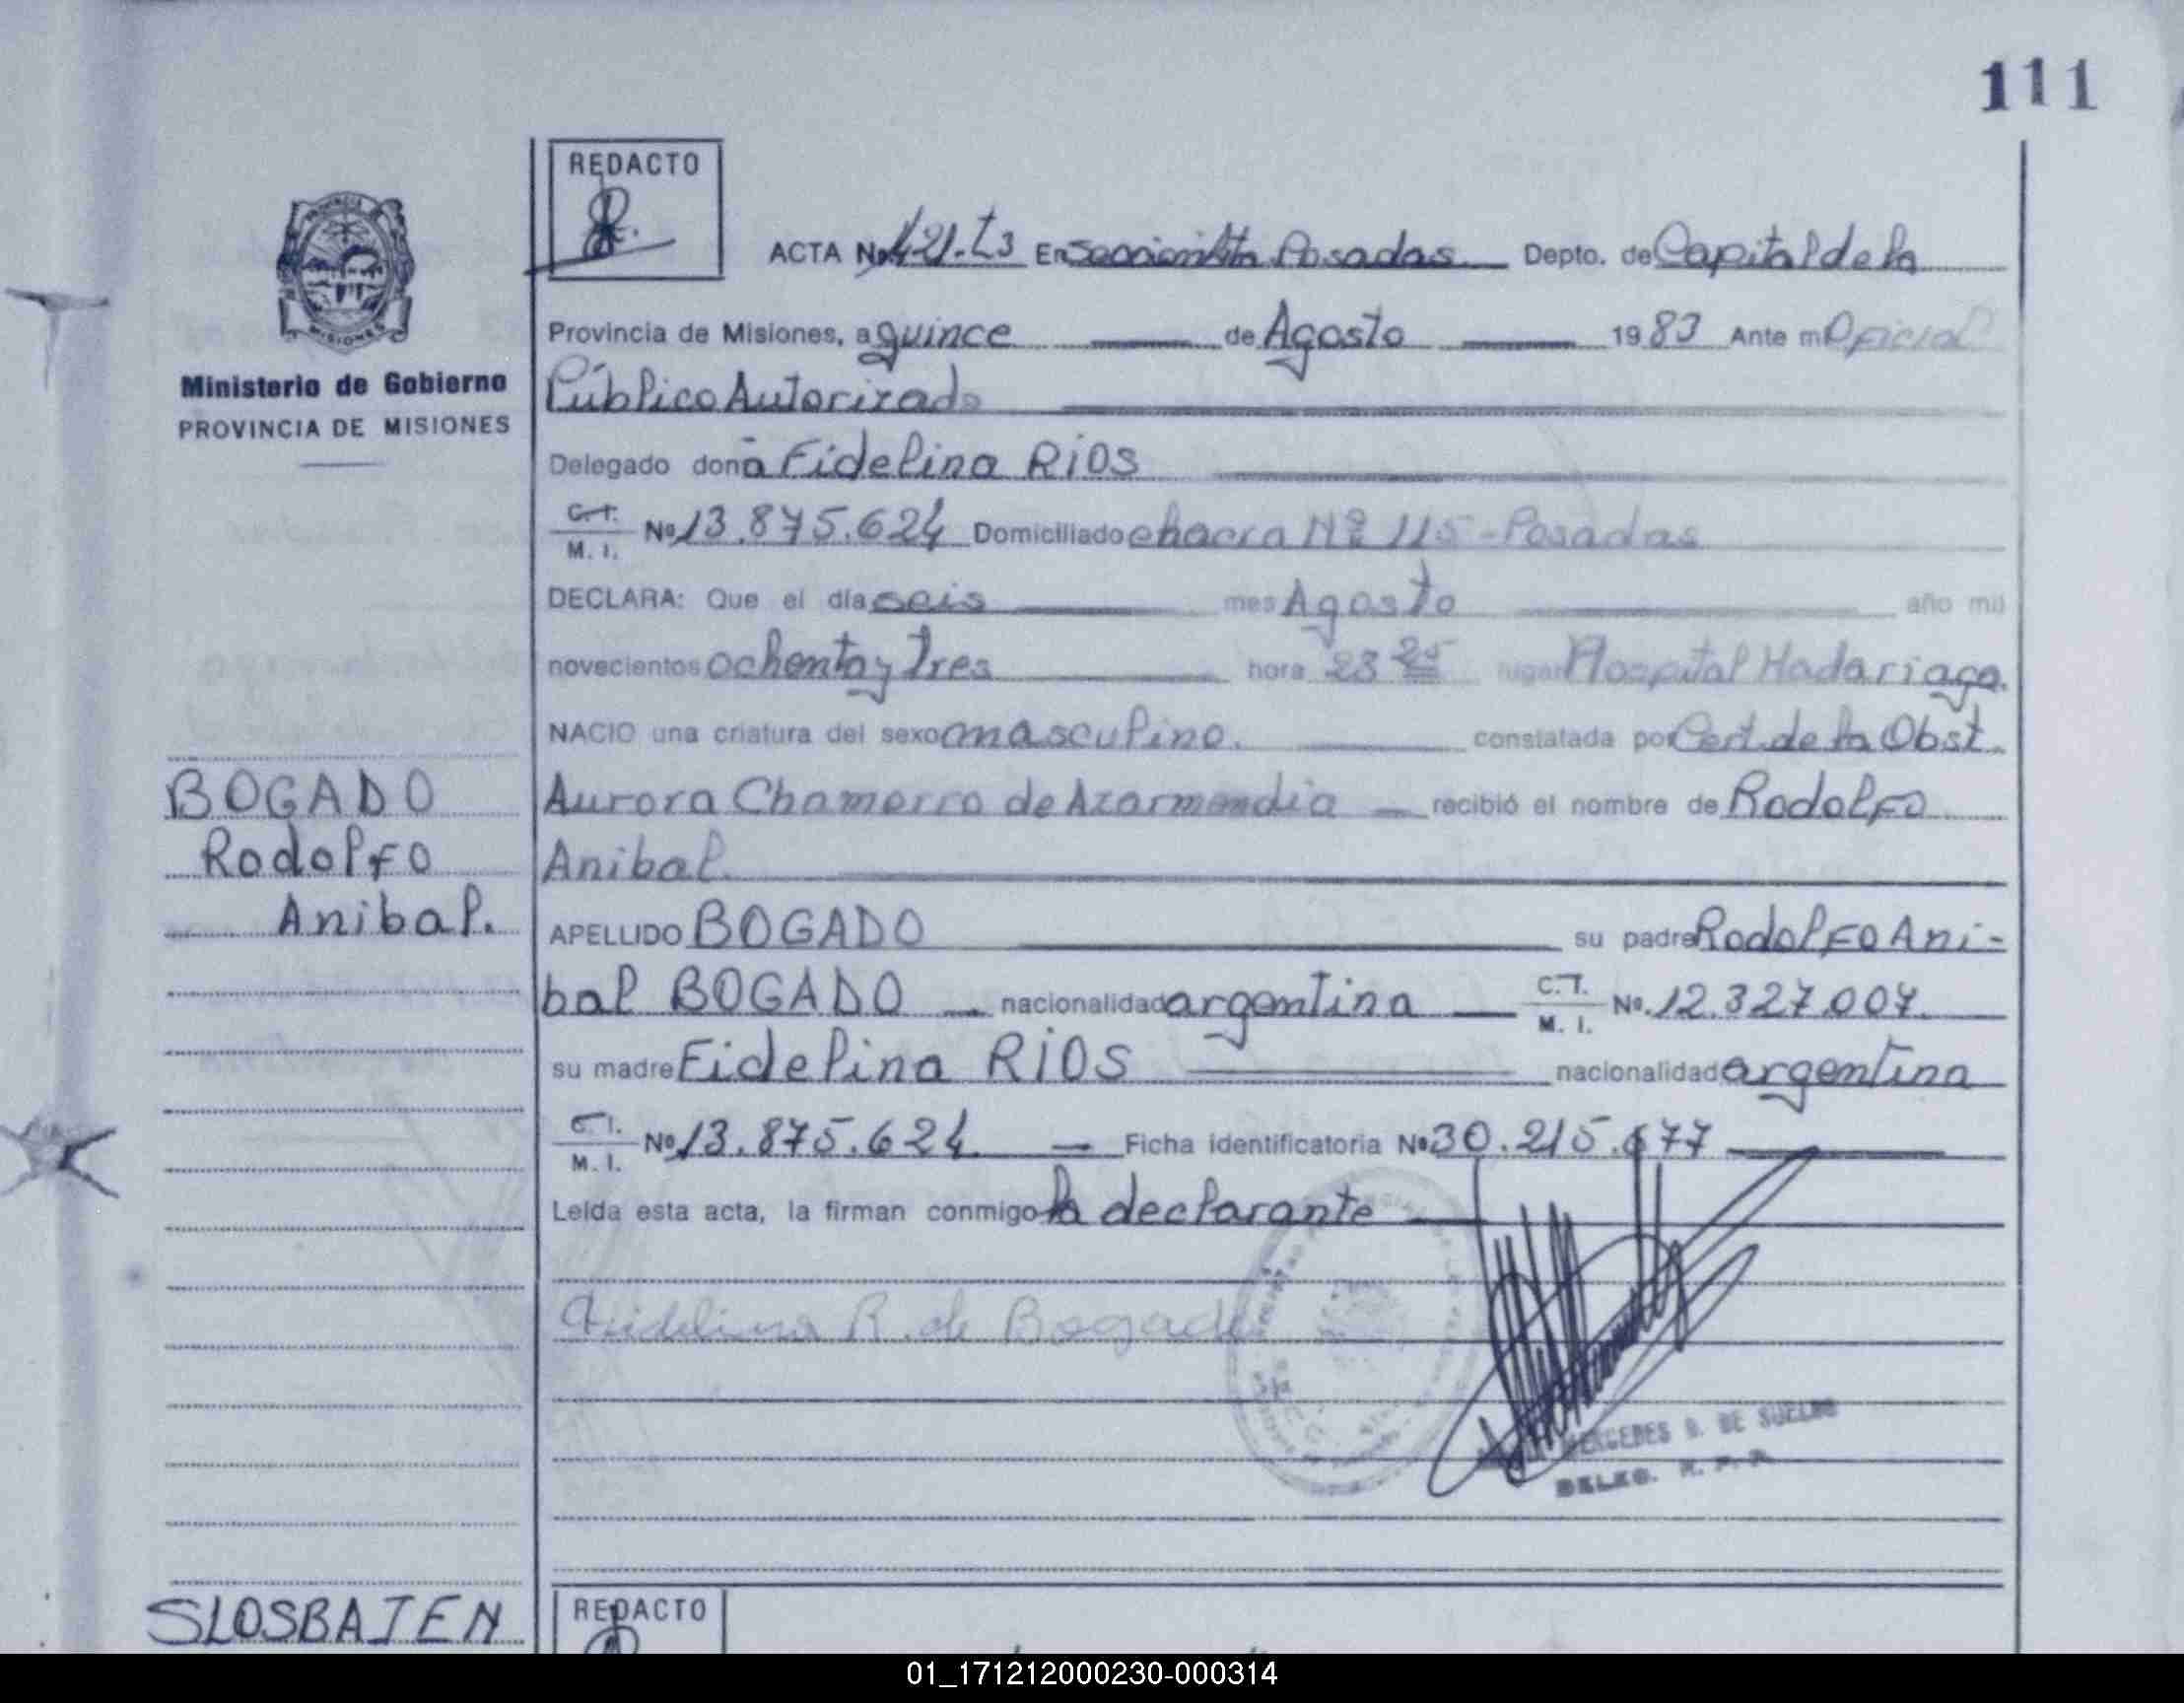 111
REDACTO
ACTA No 421-T3 En Sección 5ta Posadas Depto. de Capital de la
Provincia de Misiones, a quince de Agosto 1983 Ante mí Oficial
Público Autorizado
Delegado doña Fidelina RIOS
C.I. M. I. No 13.875.624 Domiciliado chacra Nº 115 - Posadas
DECLARA: Que el día seis mes Agosto año mil
novecientos ochenta y Tres hora 23 25 lugar Hospital Madariaga.
NACIO una criatura del sexo masculino. constatada por Cert. de la Obst.
Aurora Chamorro de Azarmendia recibió el nombre de Rodolfo
Anibal.
APELLIDO BOGADO su padre Rodolfo Ani-
bal BOGADO nacionalidad argentina C.I. M. I. No. 12.327.007.
su madre Fidelina RIOS nacionalidad argentina
C.I. M. I. No 13.875.624. Ficha identificatoria No 30.215.677
Leída esta acta, la firman conmigo la declarante
Fidelina R. de Bogado
MERCEDES DE SUELDO
DELEG. R. P. P.
PROVINCIA
MISIONES
Ministerio de Gobierno
PROVINCIA DE MISIONES
BOGADO
Rodolfo
Anibal.
SLOSBAJEN
REDACTO
01_171212000230-000314